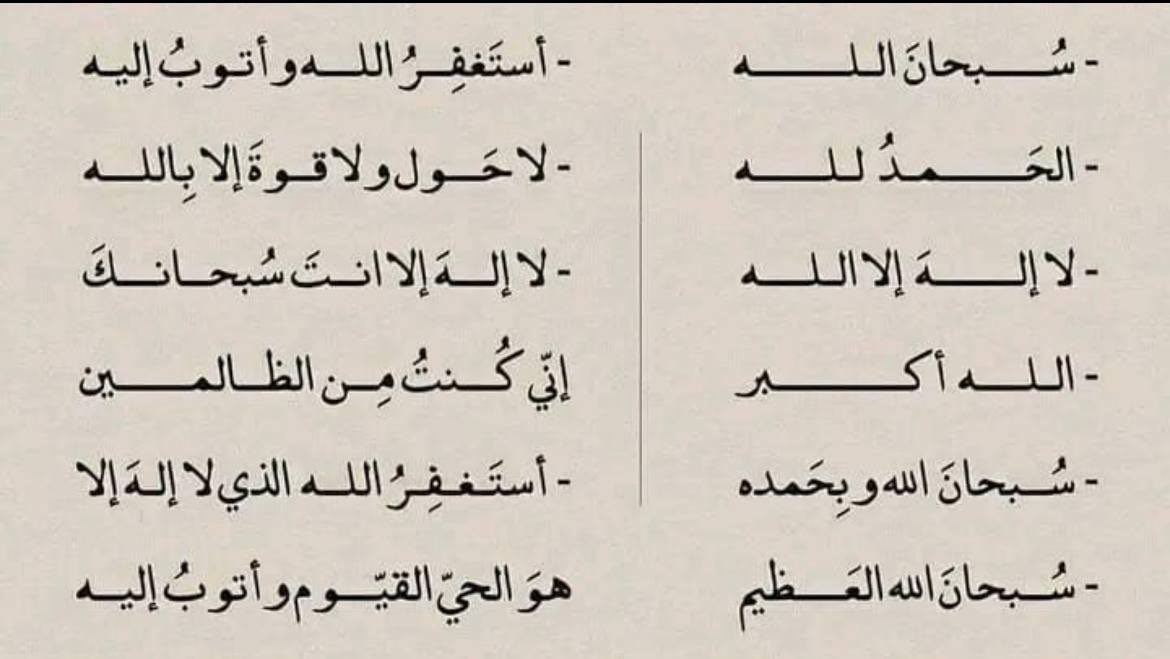 - سُبحانَ الله
- الحَمدُ لله
- لا إلهَ إلا الله
- الله أكبر
- سُبحانَ الله وبِحَمده
- سُبحانَ الله العَظيم
- أستَغفِرُ الله وأتوبُ إليه
- لا حَول ولا قوةَ إلا بِالله
- لا إلهَ إلا انتَ سُبحانكَ
إنّي كُنتُ مِن الظالمين
- أستَغفِرُ الله الذي لا إلهَ إلا
هوَ الحيّ القيّوم وأتوبُ إليه